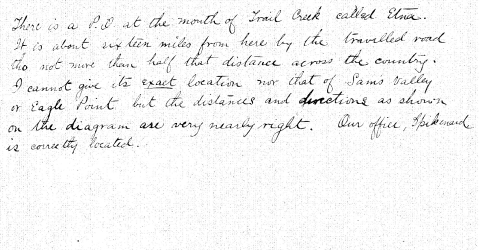 There is a P.O. at the mouth of Trail Creek called Etna.
It is about sixteen miles from here by the travelled road
tho not more than half that distance across the country.
I cannot give its exact location nor that of Sams Valley
or Eagle Point but the distances and directions as shown
on the diagram are very nearly right. Our office, Spikenard
is correctly located.